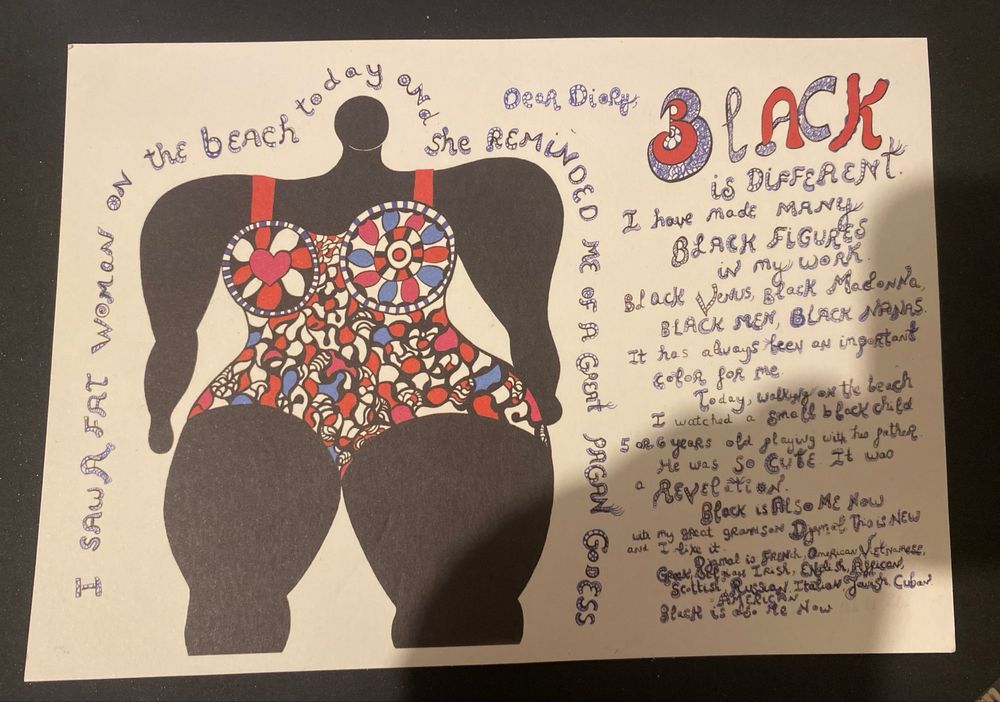 I SAW A FAT WOMAN ON the bEACH today And she REMINDED ME OF A GREAT PAGAN GODESS
Dear Diary,
BlACK
is DIFFERENT.
I have made MANY
BLACK FIGURES
in my work.
BLACK VENUS, BLack Madonna,
BLACK MEN, BLACK NANAS.
It has always been an important
color for me.
Today, walking on the beach
I watched a small black child
5 or 6 years old playing with his father.
He was SO CUTE. It was
a REVELATION.
Black is Also Me Now
with my great grandson Djamal This is NEW
and I like it.
Djamal is FRENCH, American, Vietnamese,
Greek, Irish, English, African,
Scottish, Russian, Italian Jewish, Cuban
AMERICAN
Black is also Me Now